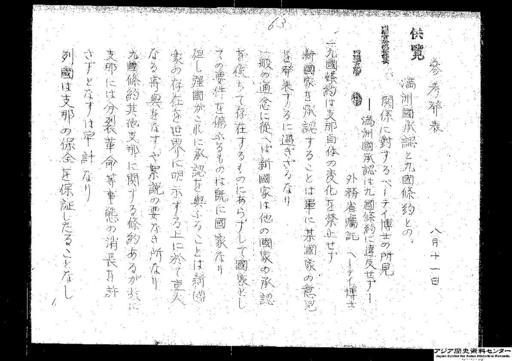 63
供覧
参考発表
八月十一日
満洲国承認と九国條約との
関係に対するベーティ博士の所見
―満洲国承認は九国條約に違反せず―
外務省嘱託 ベーティ博士
一、九國條約は支那自体の変化を禁止せず
新國家を承認することは単に某國家の意見
を発表するに過ぎざるなり
一般の通念に従へば新國家は他の國家の承認
を俟ちて存在するものにあらずして國家とし
ての要件を備ふるものは既に國家なり
但し强國が之れに承認を與ふることは新國
家の存在を世界に明示する上に於て重大
なる寄與をなすや絮説の要なき所なり
九國條約其他支那に関する條約あるが故に
支那には分裂革命等事態の消長を許
さずとなすは早計なり
列國は支那の保全を保証したることなし
アジア歴史資料センター
Japan Center for Asian Historical Records